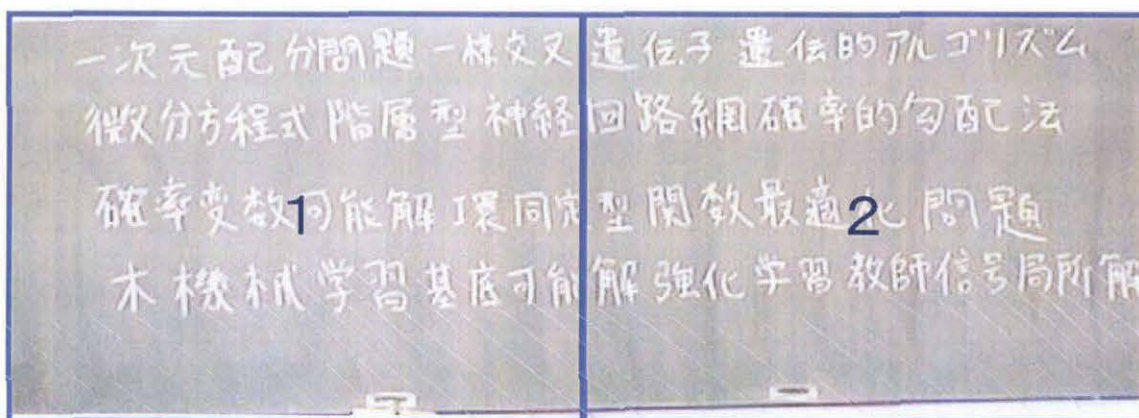 一次元配分問題一様交叉遺伝子遺伝的アルゴリズム
微分方程式階層型神経回路網確率的勾配法
確率変数可能解環同定型関数最適化問題
木機械学習基底可能解強化学習教師信号局所解
1
2